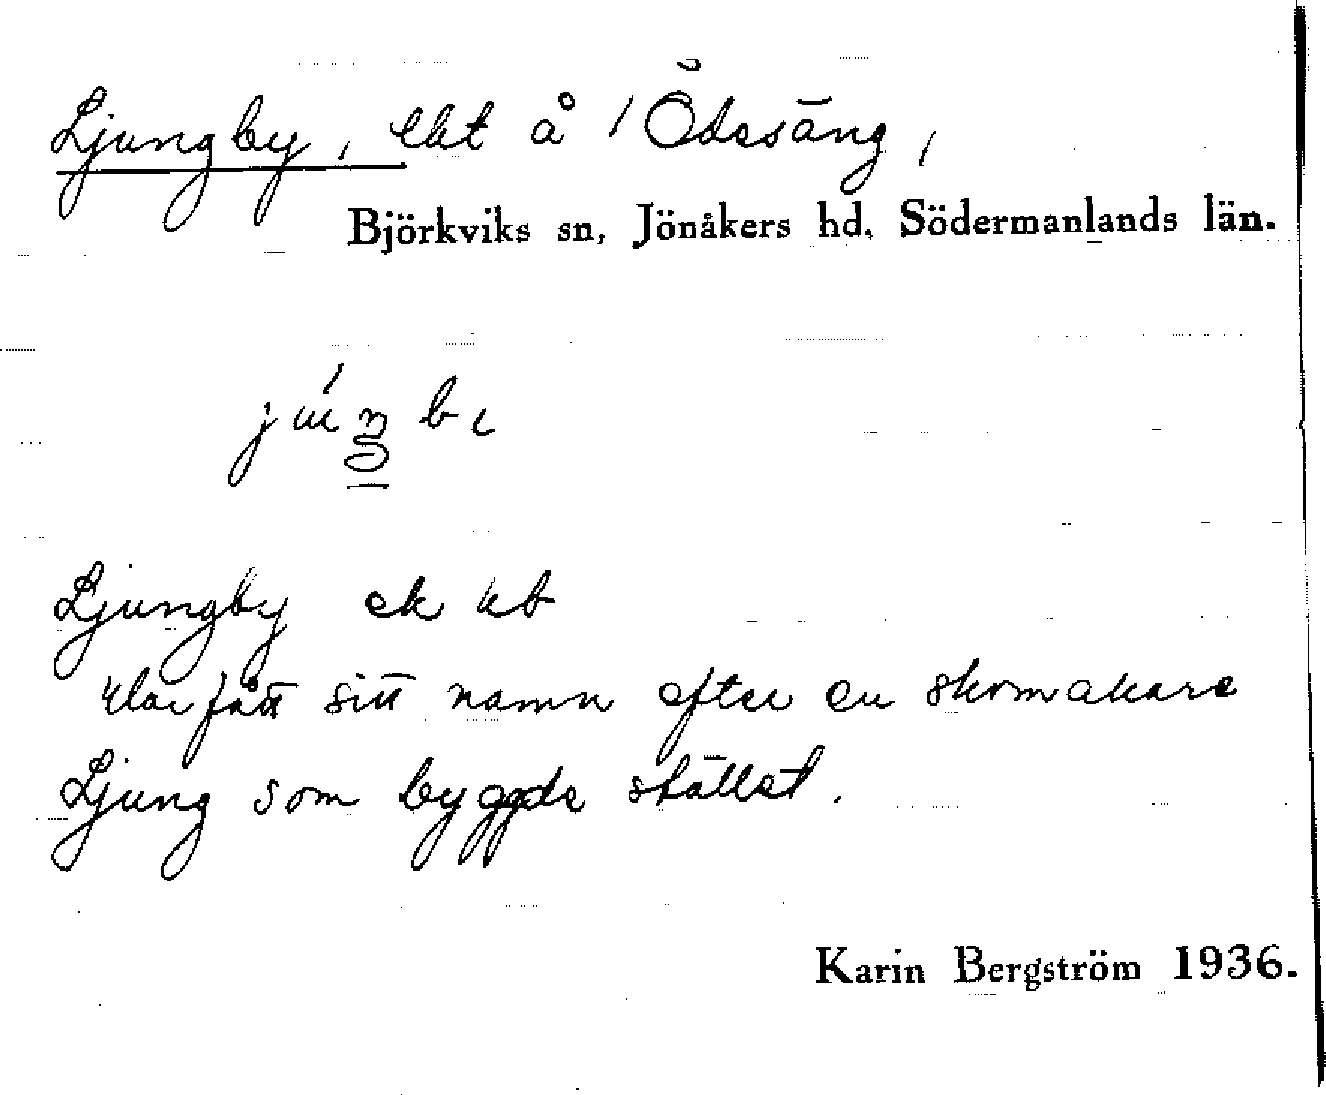 Ljungby, lht å / Ödesäng,
Björkviks sn, Jönåkers hd, Södermanlands län.
Ljungby ek kb
Har fått sitt namn efter en skomakare
Ljung som byggde stället.
Karin Bergström 1936.